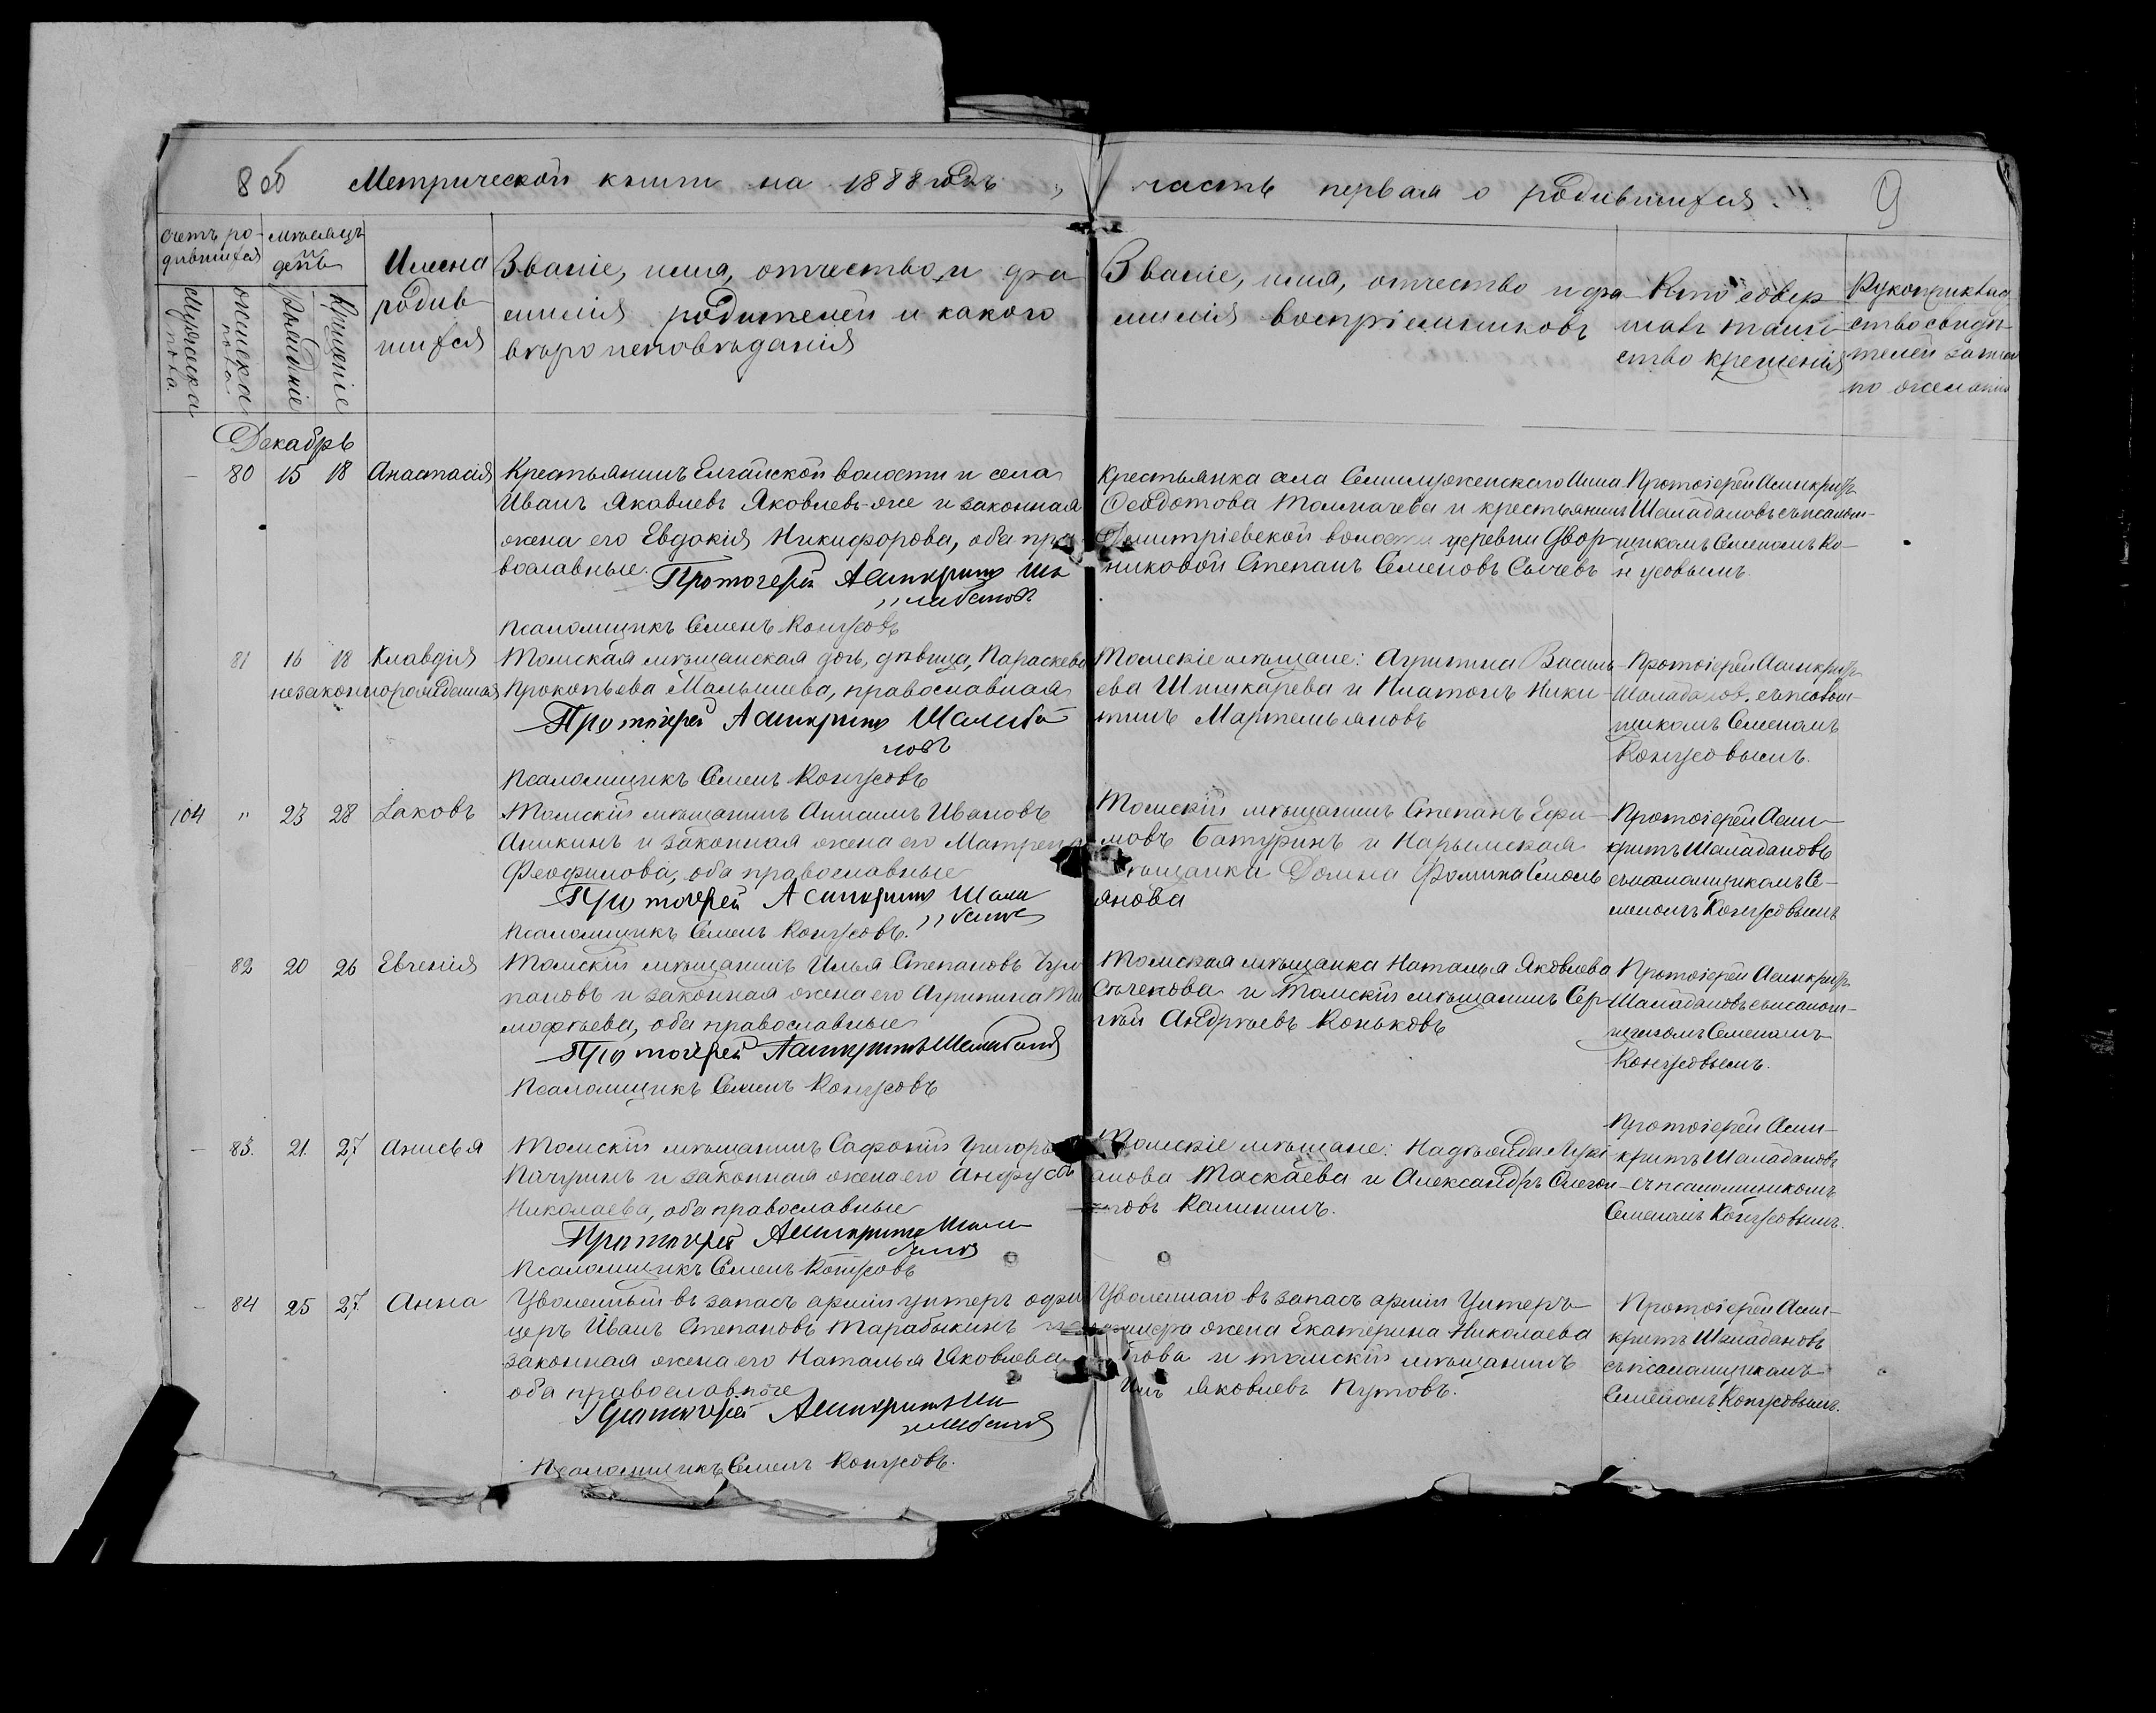 8 об Метрической книги на 1888 годъ
часть первая о родившихся. 9
счетъ ро-
дившихся
мѣсяцъ
и
день
Мужеска
пола
женска
пола
Рожденіе
Крещеніе
Имена
родив
шихся
Званіе, имя, отчество и фа
милія родителей и какого
вѣроисповѣданія
Званіе, имя, отчество и фа
милія воспріемниковъ
Кто совер
шалъ таин
ство крещенія
Рукоприклад
ство свидѣ
телей записи
по желанію
Декабрь
80 15 18 Анастасія
Крестьянинъ Елгайской волости и села
Иванъ Яковлевъ Яковлевъ-же и законная
жена его Евдокія Никифорова, оба пра
вославные. Протоіерей Асинкритъ Ша
лабановъ
Псаломщикъ Семенъ Конусовъ
Крестьянка села Анна
Ѳеодотова Толмачева и крестьянинъ
Дмитріевской волости деревни Двор
никовой Степанъ Семеновъ Сычевъ
Протоіерей Асинкритъ
Шалабановъ съ псалом-
щикомъ Семеномъ Ко-
нусовымъ.
81 16 18 Клавдія
незаконнорожденная
Томская мѣщанская дочь, дѣвица, Параскева
Прокопьева Малышева, православная
Протоіерей Асинкритъ Шалаба
новъ
Псаломщикъ Семенъ Конусовъ
Томскіе мѣщане: Агрипина Василь
ева Шишкарева и Платонъ Ники
тинъ Мартемьяновъ
Протоіерей Асинкритъ
Шалабановъ съ псалом-
щикомъ Семеномъ
Конусовымъ.
104 " 23 28 Іаковъ
Томскій мѣщанинъ Анисимъ Ивановъ
Аникинъ и законная жена его Матрена
Феофилова, оба православные
Протоіерей Асинкритъ Шала
бановъ
Псаломщикъ Семенъ Конусовъ.
Томскій мѣщанинъ Степанъ Ефи-
мовъ Батуринъ и Нарымская
мѣщанка Домна Фомина Смоль
янова
Протоіерей Асин-
критъ Шалабановъ
съ псаломщикомъ Се-
меномъ Конусовымъ
82 20 26 Евгенія
Томскій мѣщанинъ Илья Степановъ
пановъ и законная жена его Агрипина Ти
мофѣева, оба православные
Протоіерей Асинкритъ Шалабановъ
Псаломщикъ Семенъ Конусовъ
Томская мѣщанка Наталья Яковлева
и Томскій мѣщанинъ Сер
гѣй Андрѣевъ Коньковъ
Протоіерей Асинкритъ
Шалабановъ съ псалом-
щикомъ Семеномъ
Конусовымъ.
83. 21. 27 Анисья
Томскій мѣщанинъ Сафоній Григорьевъ
Пачуринъ и законная жена его
Николаева, оба православные
Протоіерей Асинкритъ Шала
бановъ
Псаломщикъ Семенъ Конусовъ
Томскіе мѣщане: Надѣжда Луки
анова Таскаева и Александръ
новъ Калининъ.
Протоіерей Асин-
критъ Шалабановъ
съ псаломщикомъ
Семеномъ Конусовымъ.
84 25 27. Анна
Уволенный въ запасъ арміи унтеръ офи
церъ Иванъ Степановъ Тарабыкинъ
законная жена его Наталья Яковлева
оба православные
Протоіерей Асинкритъ Ша
лабановъ
Псаломщикъ Семенъ Конусовъ.
Уволеннаго въ запасъ арміи Унтеръ
жена Екатерина Николаева
и томскій мѣщанинъ
Яковлевъ Путовъ.
Протоіерей Асин-
критъ Шалабановъ
съ псаломщикомъ
Семеномъ Конусовымъ.